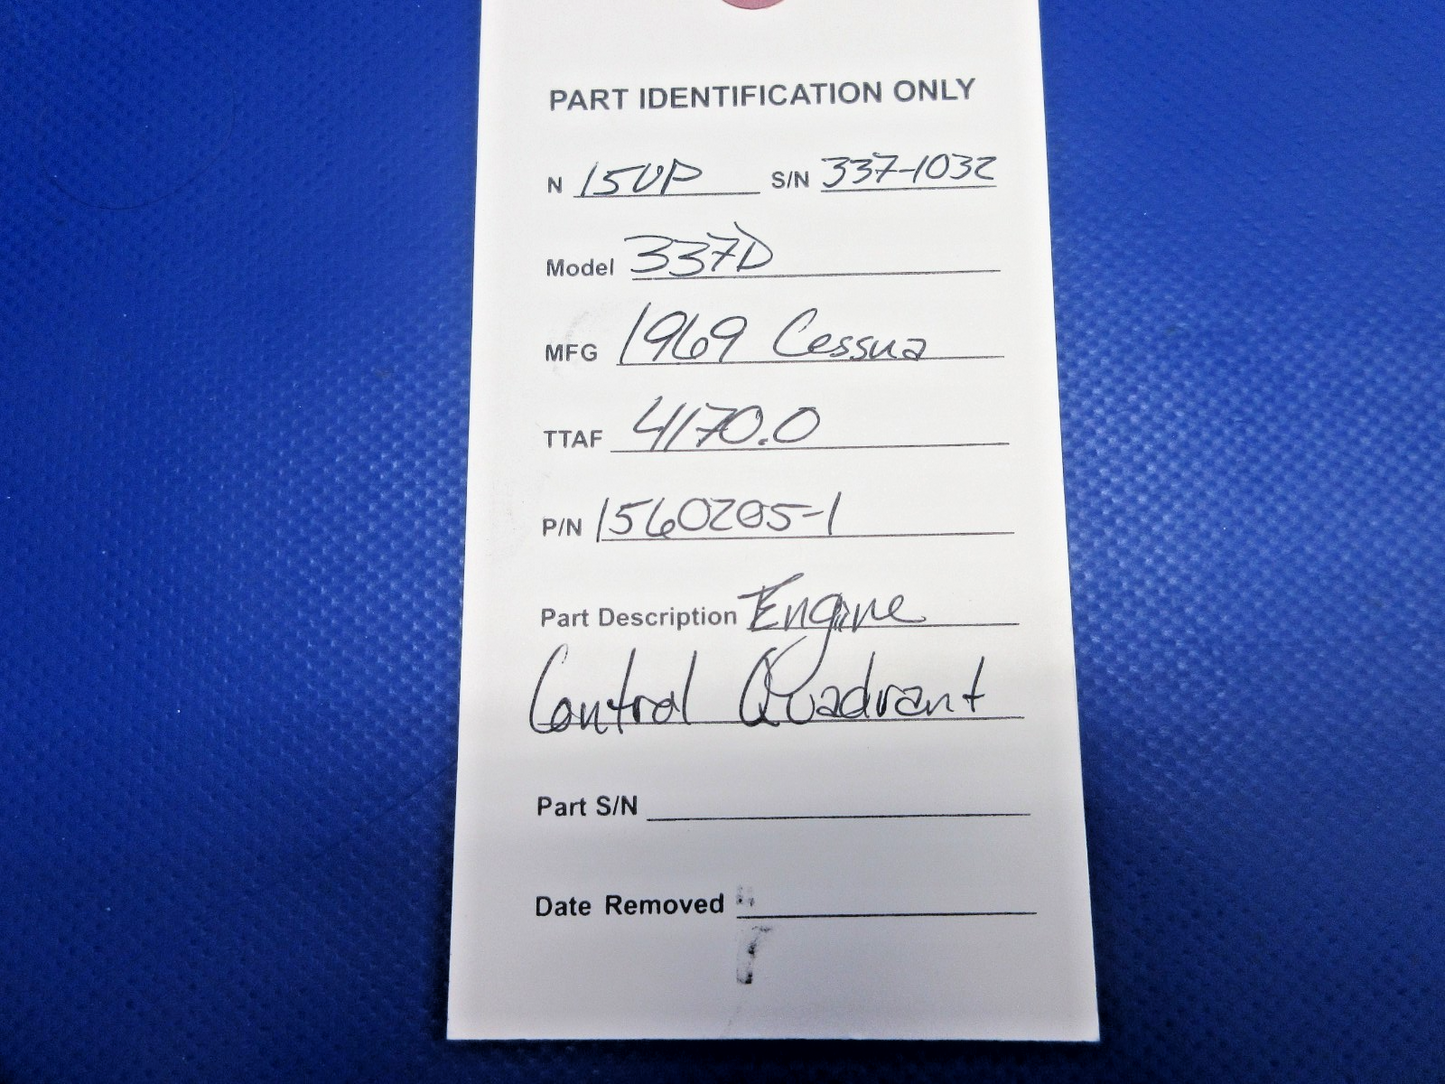 PART IDENTIFICATION ONLY
N 15UP S/N 337-1032
Model 337D
MFG 1969 Cessna
TTAF 4170.0
P/N 1560205-1
Part Description Engine
Control Quadrant
Part S/N
Date Removed